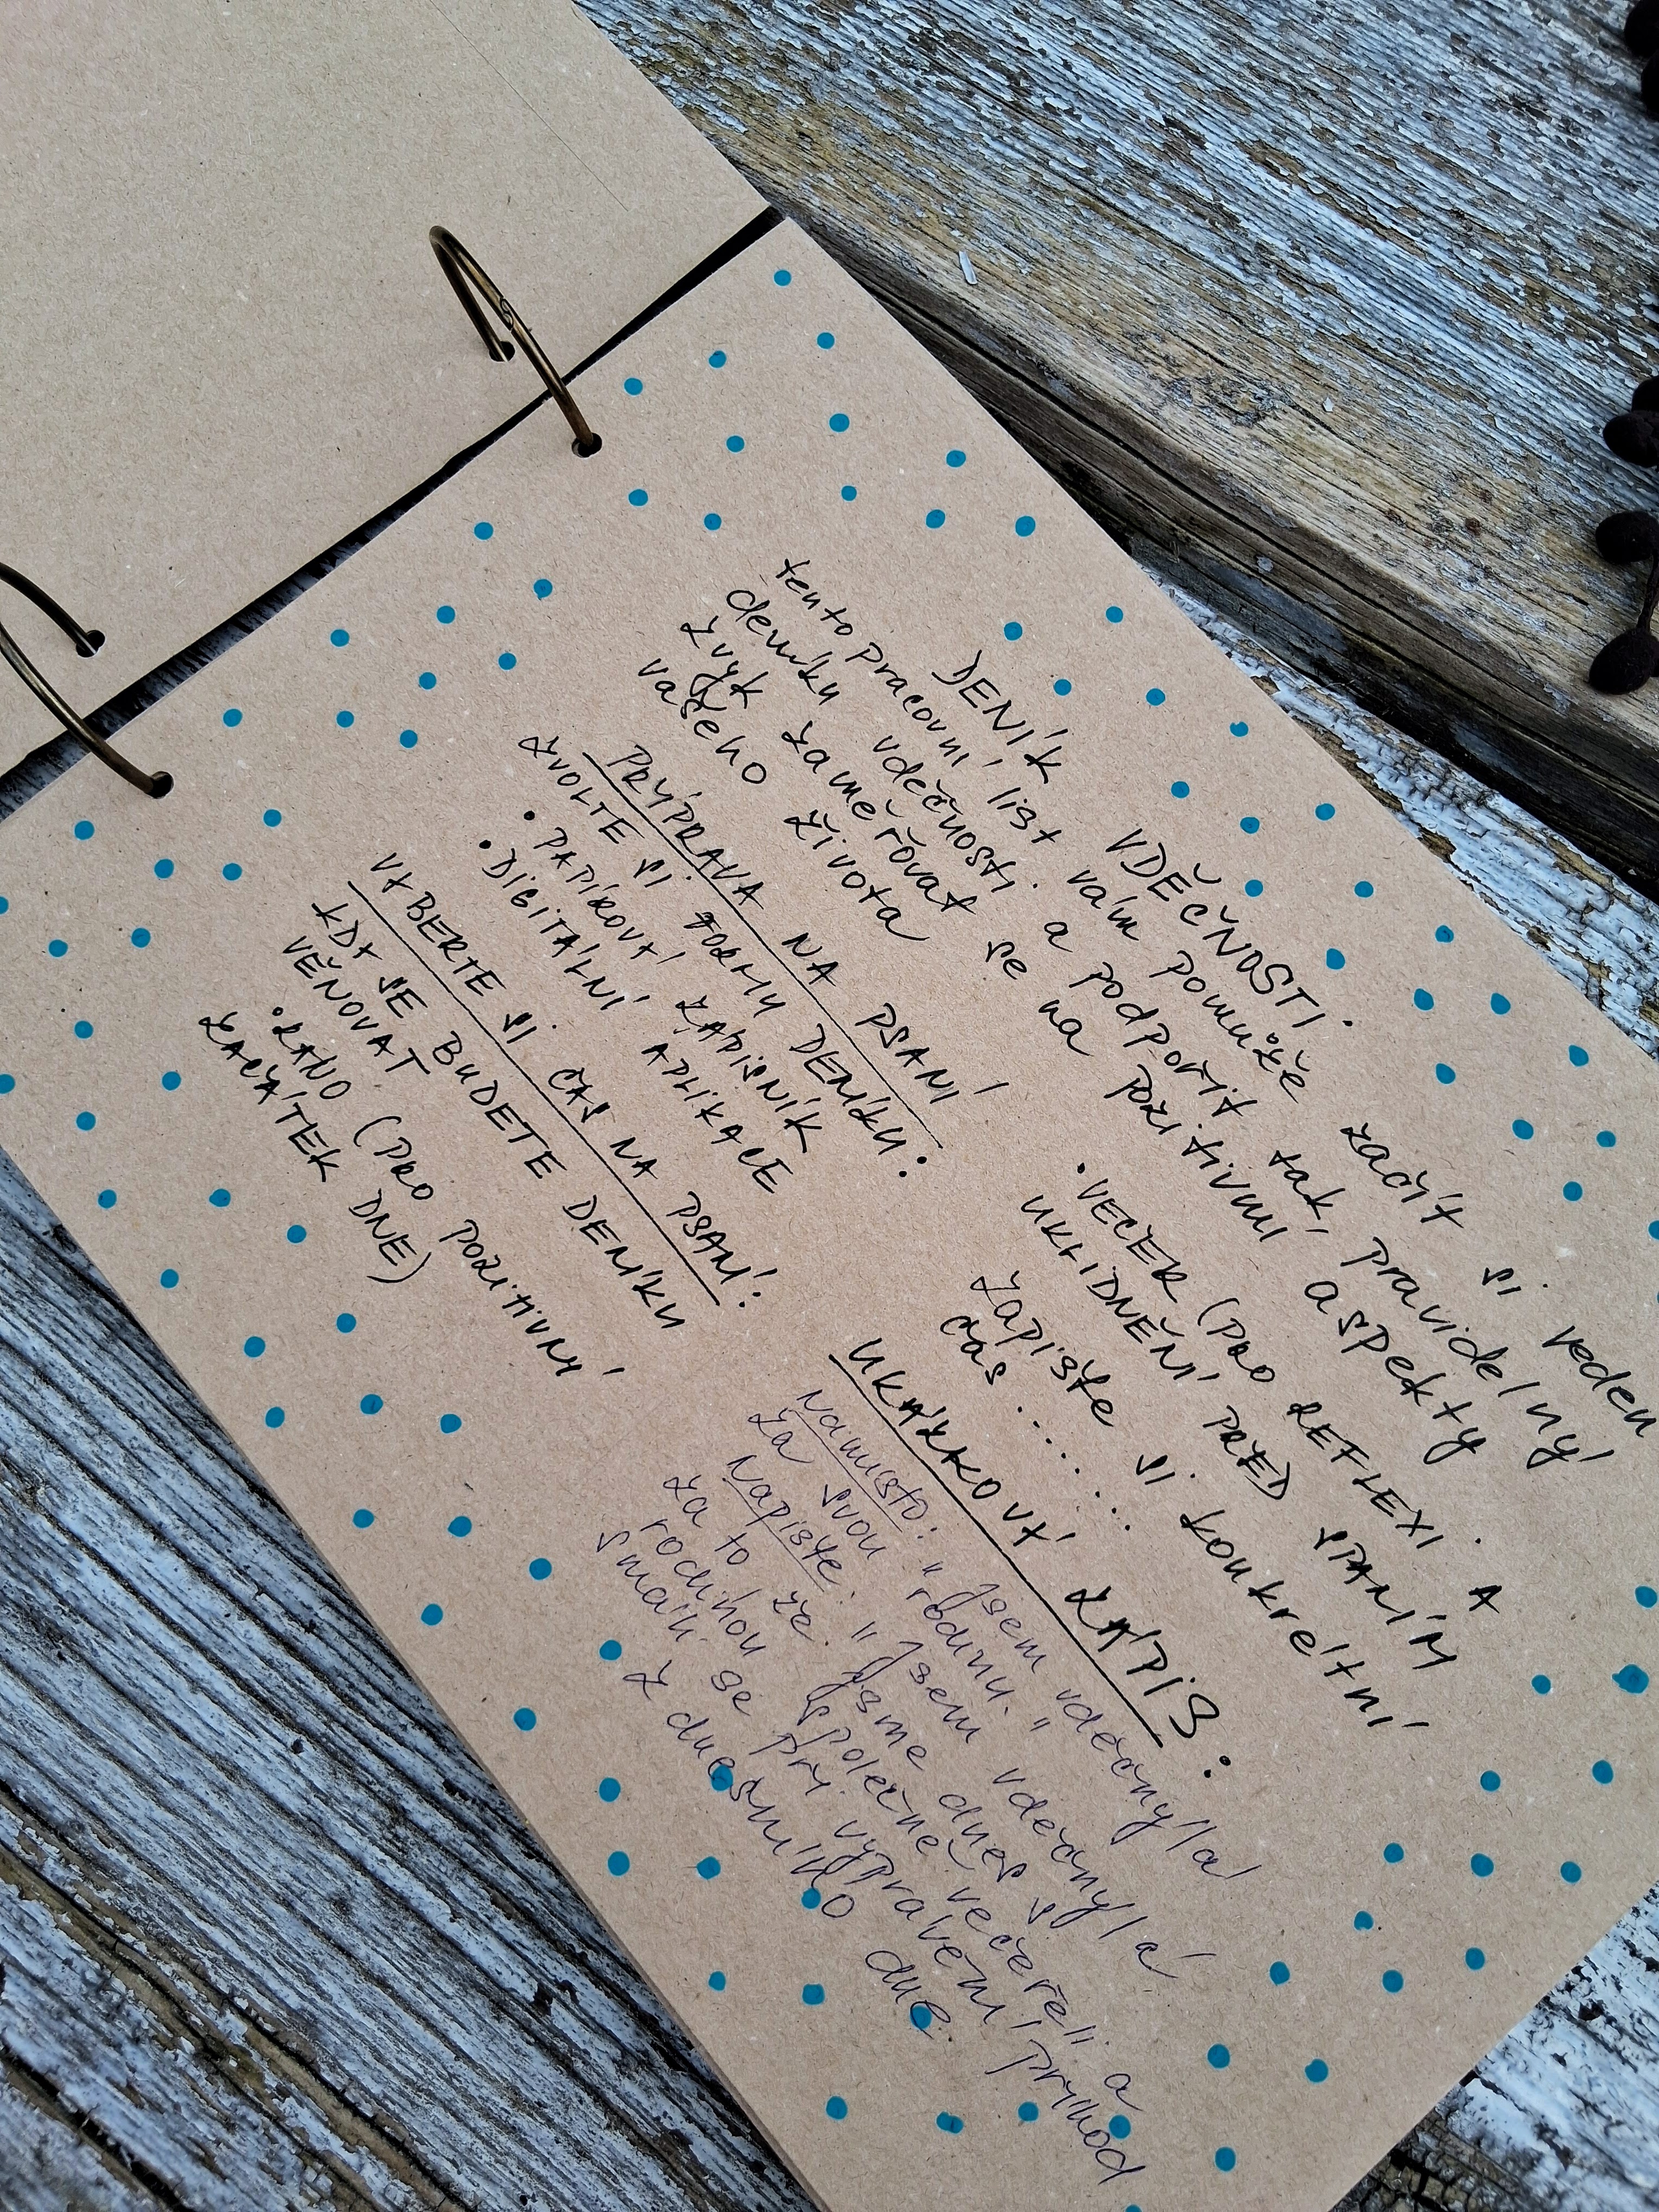 DENÍK VDĚČNOSTI.
tento pracovní list vám pomůže začít si veden
deníku vděčnosti a podpořit tak, pravidelný
zvyk zaměřovat se na pozitivní aspekty
vašeho života
PŘÍPRAVA NA PSANÍ
ZVOLTE SI FORMU DENÍKU:
• PAPÍROVÝ ZÁPISNÍK
• DIGITÁLNÍ APLIKACE
VYBERTE SI ČAS NA PSANÍ:
KDY SE BUDETE DENÍKU
VĚNOVAT
• RÁNO (PRO POZITIVNÍ
ZAČÁTEK DNE)
• VEČER (PRO REFLEXI A
UKLIDNĚNÍ PŘED SPANÍM
Zapište si konkrétní
čas ........
UKÁZKOVÝ ZÁPIS:
Namísto: "Jsem vděčný/á
za svou rodinu."
Napište: "Jsem vděčný/á
za to že jsme dnes s
rodinou společně večeřeli a
smáli se při vyprávění příhod
z dnešního dne.